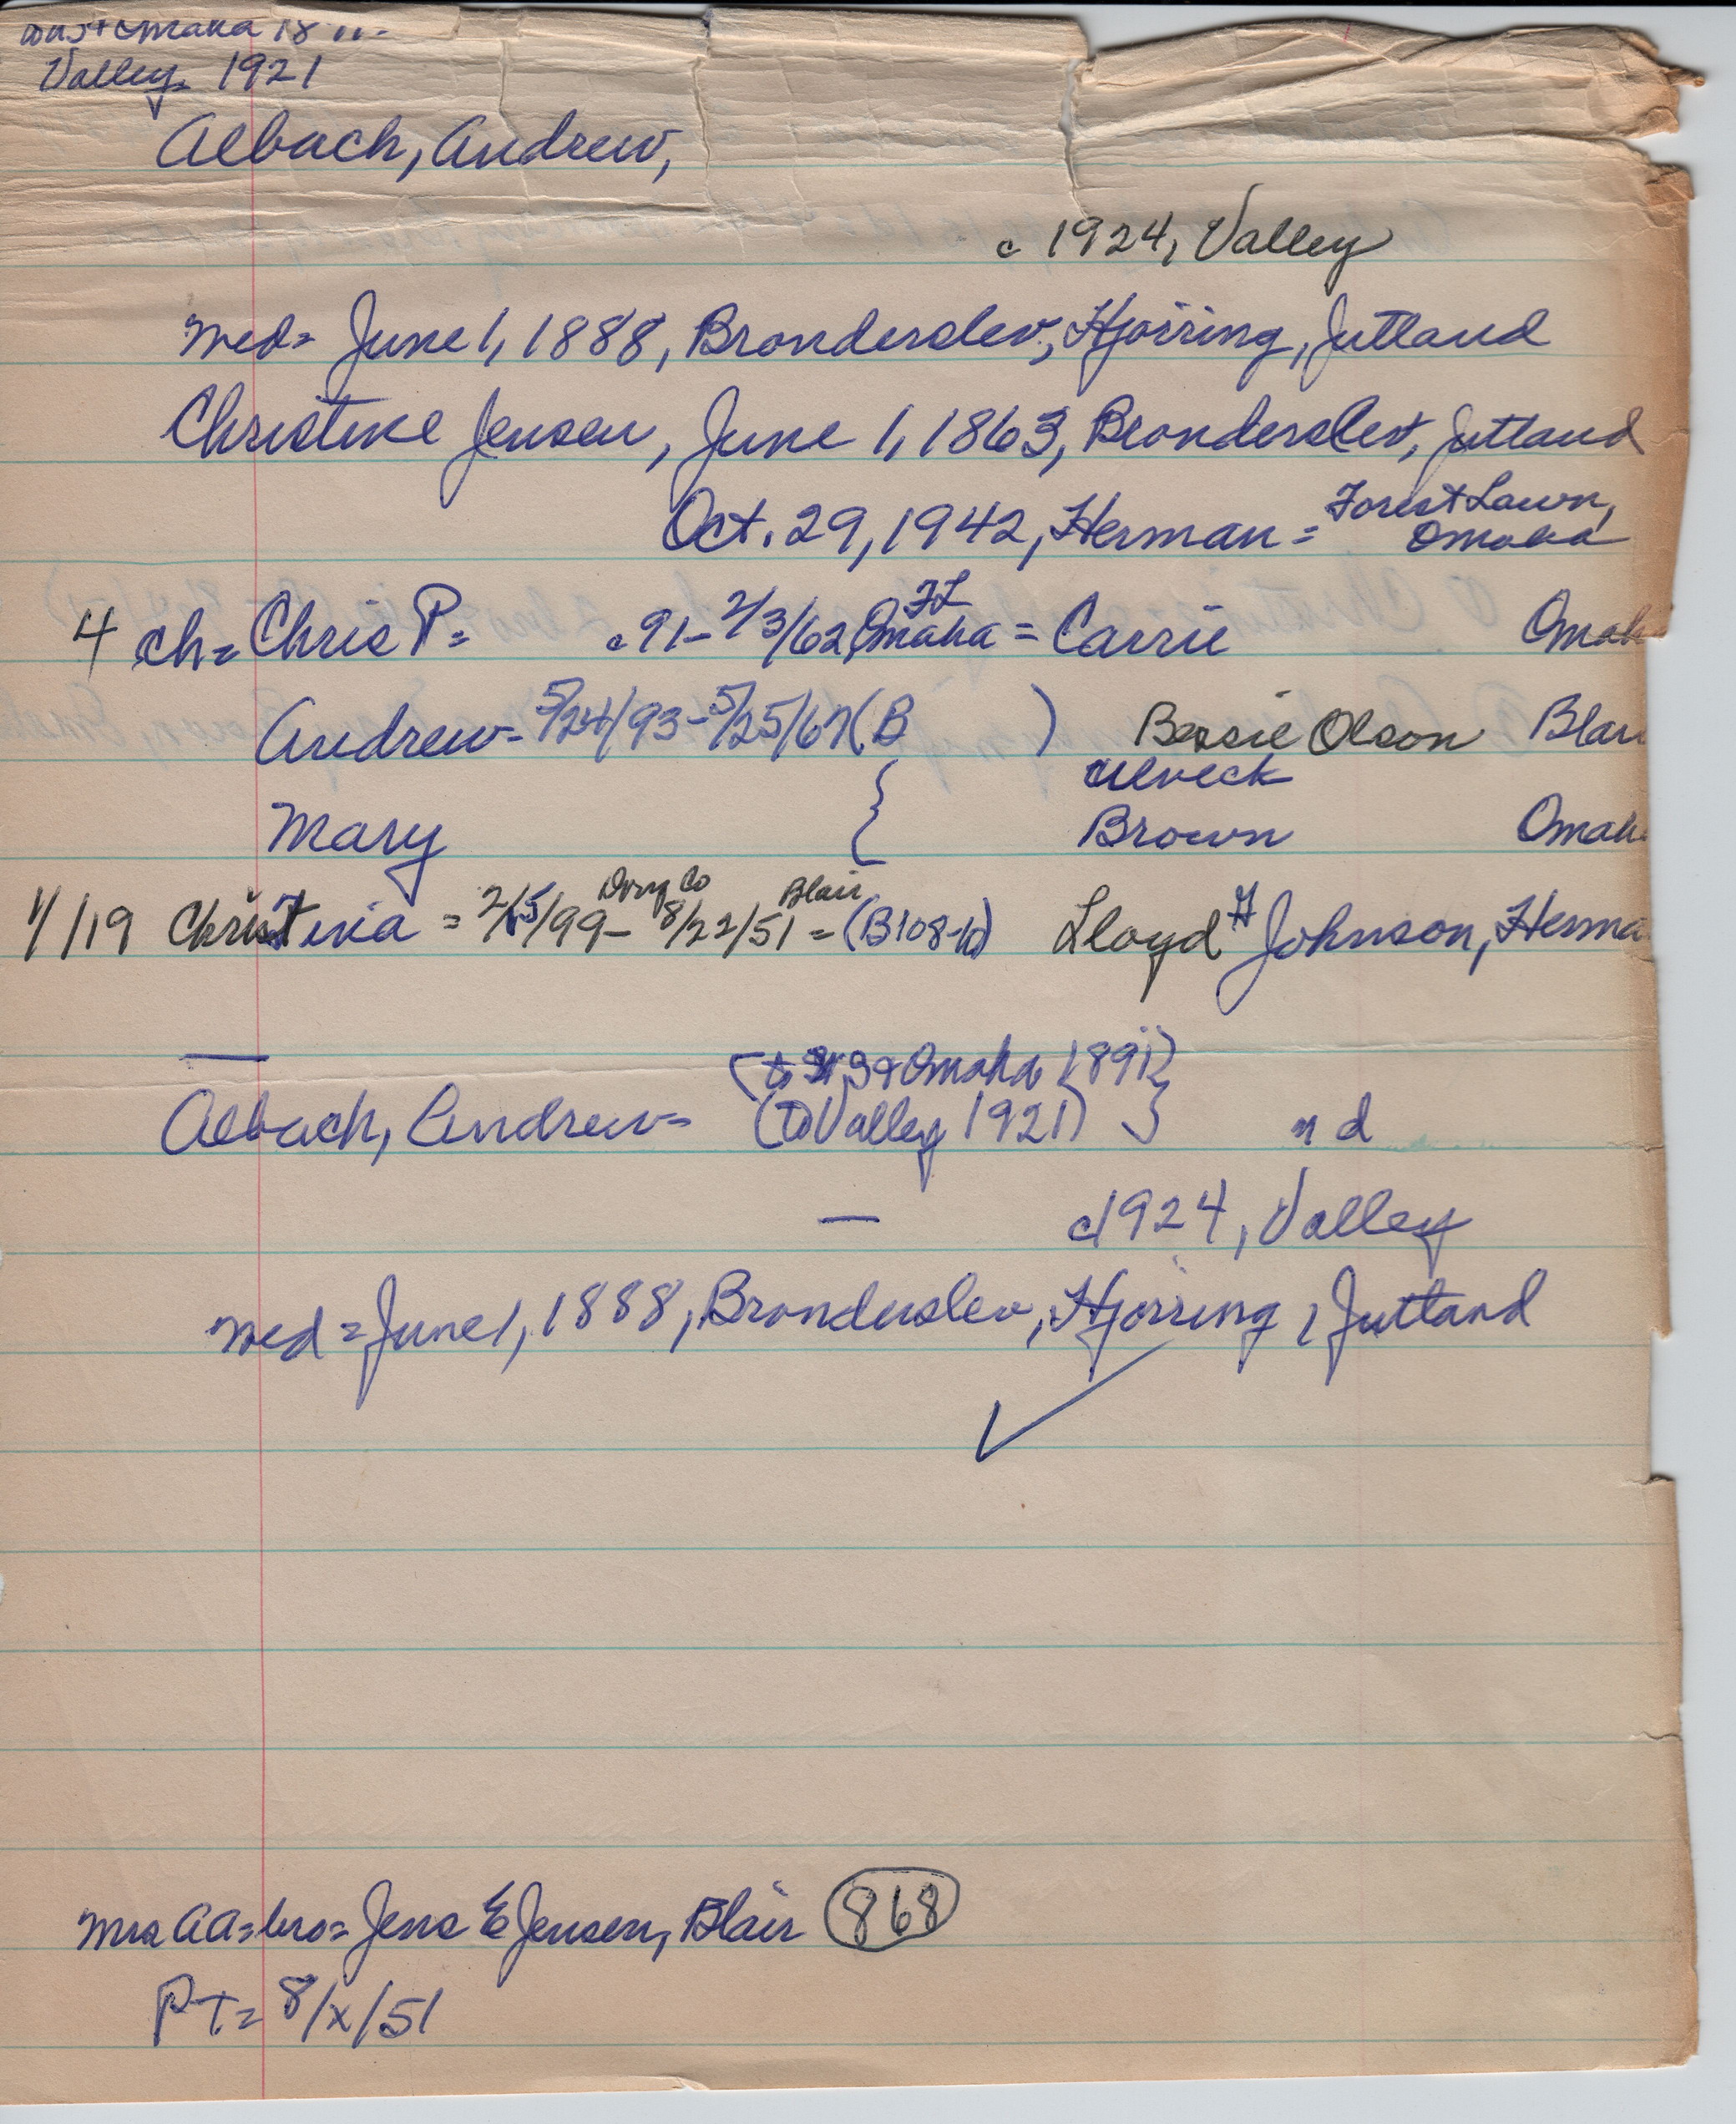 Omaha 18
Valley 1921
Aebach, Andrew,
c 1924, Valley
med= June 1, 1888, Bronderslev, Hjorring, Jutland
Christine Jensen, June 1, 1863, Bronderslev, Jutland
Oct. 29, 1942, Herman = Forest Lawn, Omaha
4 ch= Chris P= c91- 2/3/62 Omaha FL = Carrie Omah
Andrew- 5/24/93-5/25/67 (B ) Bessie Olson Blair
Mary { Brown Omah
4/19 Christinia = 2/15/99- Doug Co 8/22/51 Blair = (B108-10) Lloyd F Johnson, Herma
Aebach, Andrew= Omaha 1891)
(to Valley 1921) } nd
— c1924, Valley
med = June 1, 1888, Bronderslev, Hjorring, Jutland
✓
Mrs AA=bro= Jens E Jensen, Blair 868
PT= 8/x/51